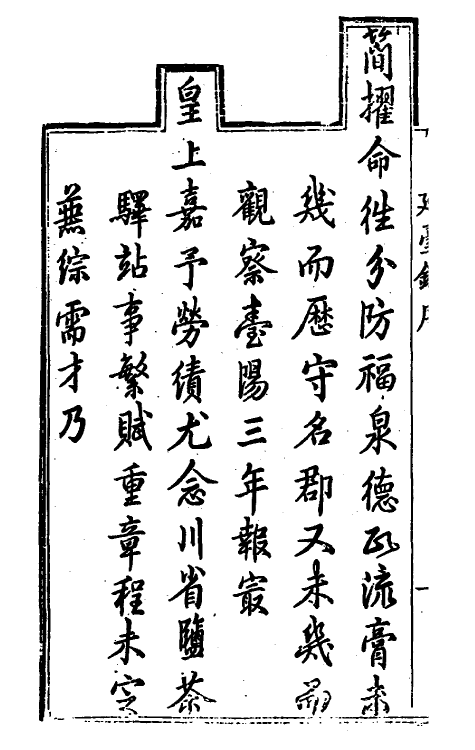 簡擢命徃分防福泉德政流膏未
幾而歷守名郡又未幾
觀察臺陽三年報最
皇上嘉予勞績尤念川省鹽茶
驛站事繁賦重章程未定
兼綜需才乃